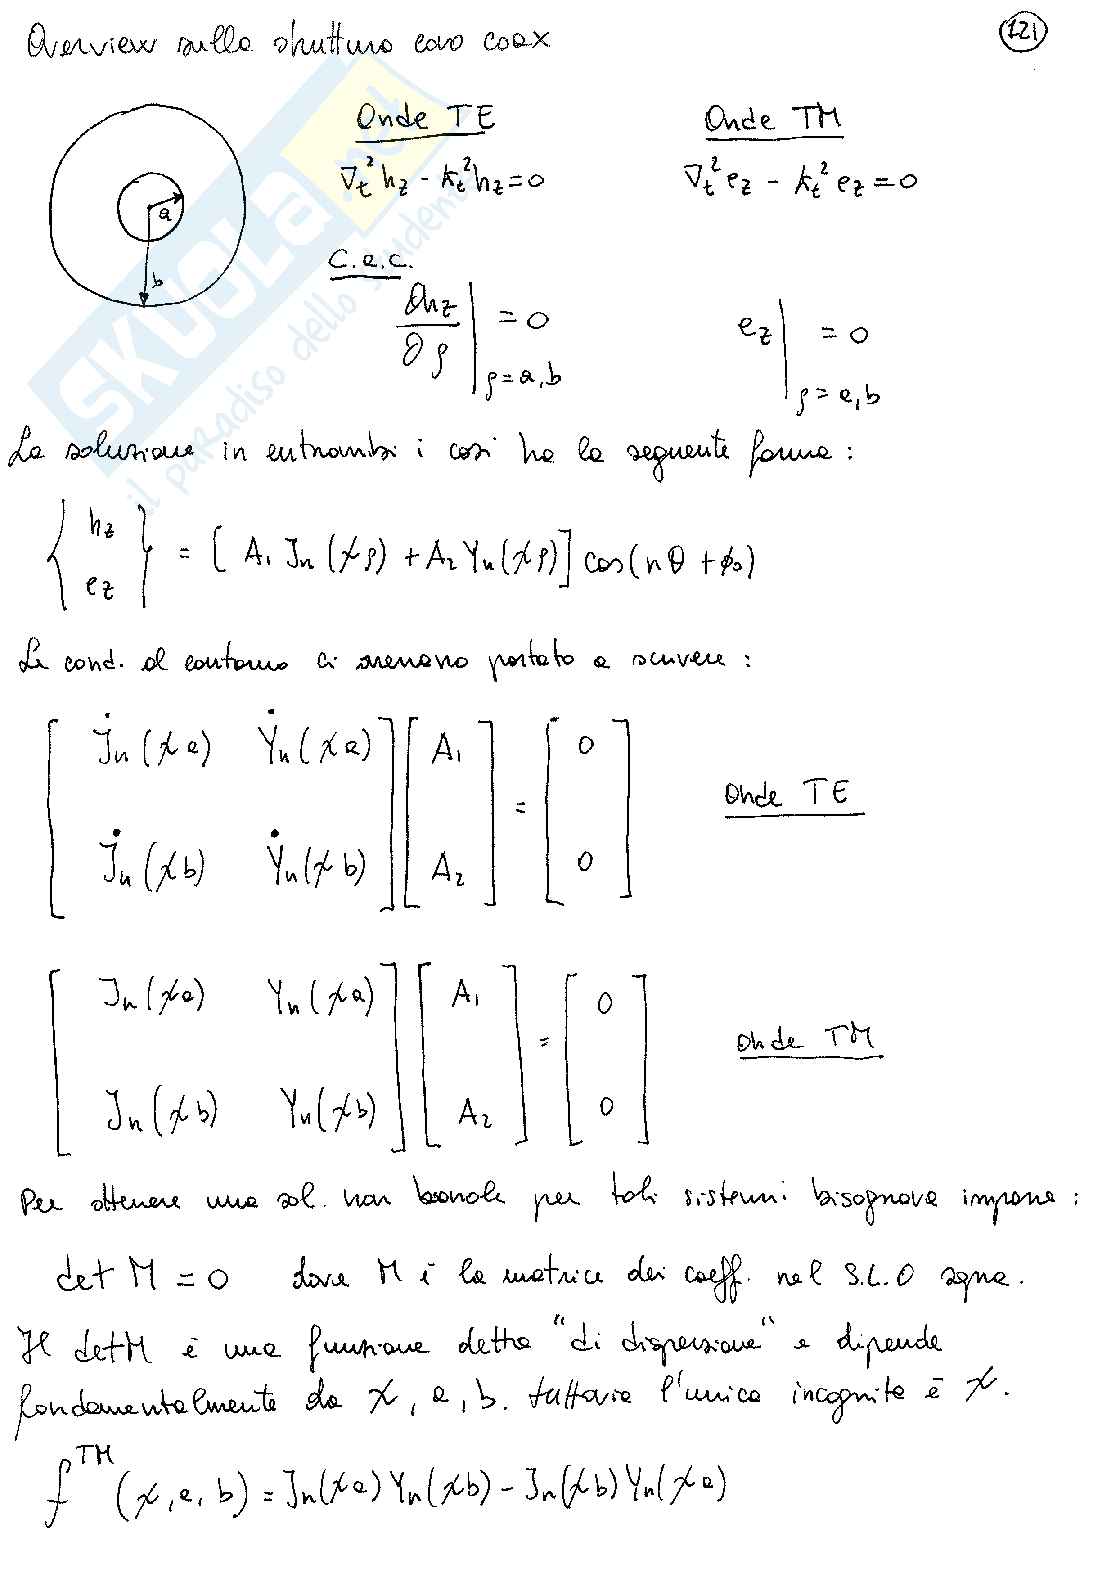 Overview sulla struttura cavo coax
121
Onde TE
Onde TM
∇t² hz - kt² hz = 0
∇t² ez - kt² ez = 0
C.a.c.
∂hz/∂ρ |ρ=a,b = 0
ez |ρ=a,b = 0
a
b
La soluzione in entrambi i casi ha la seguente forma:
{hz ez} = [A1 Jn(χρ) + A2 Yn(χρ)] cos(nθ + ϕ0)
Le cond. al contorno ci avevano portato a scrivere:
[J̇n(χa) Ẏn(χa)] [A1] = [0]
[J̇n(χb) Ẏn(χb)] [A2] [0]
Onde TE
[Jn(χa) Yn(χa)] [A1] = [0]
[Jn(χb) Yn(χb)] [A2] [0]
Onde TM
Per ottenere una sol. non banale per tali sistemi bisognava imporre:
det M = 0 dove M è la matrice dei coeff. nel S.L.O
Il detM è una funzione detta "di dispersione" e dipende
fondamentalmente da χ, a, b. tuttavia l'unica incognita è χ.
f^TM (χ, a, b) = Jn(χa) Yn(χb) - Jn(χb) Yn(χa)
SKUOLA.net
il paradiso dello studente